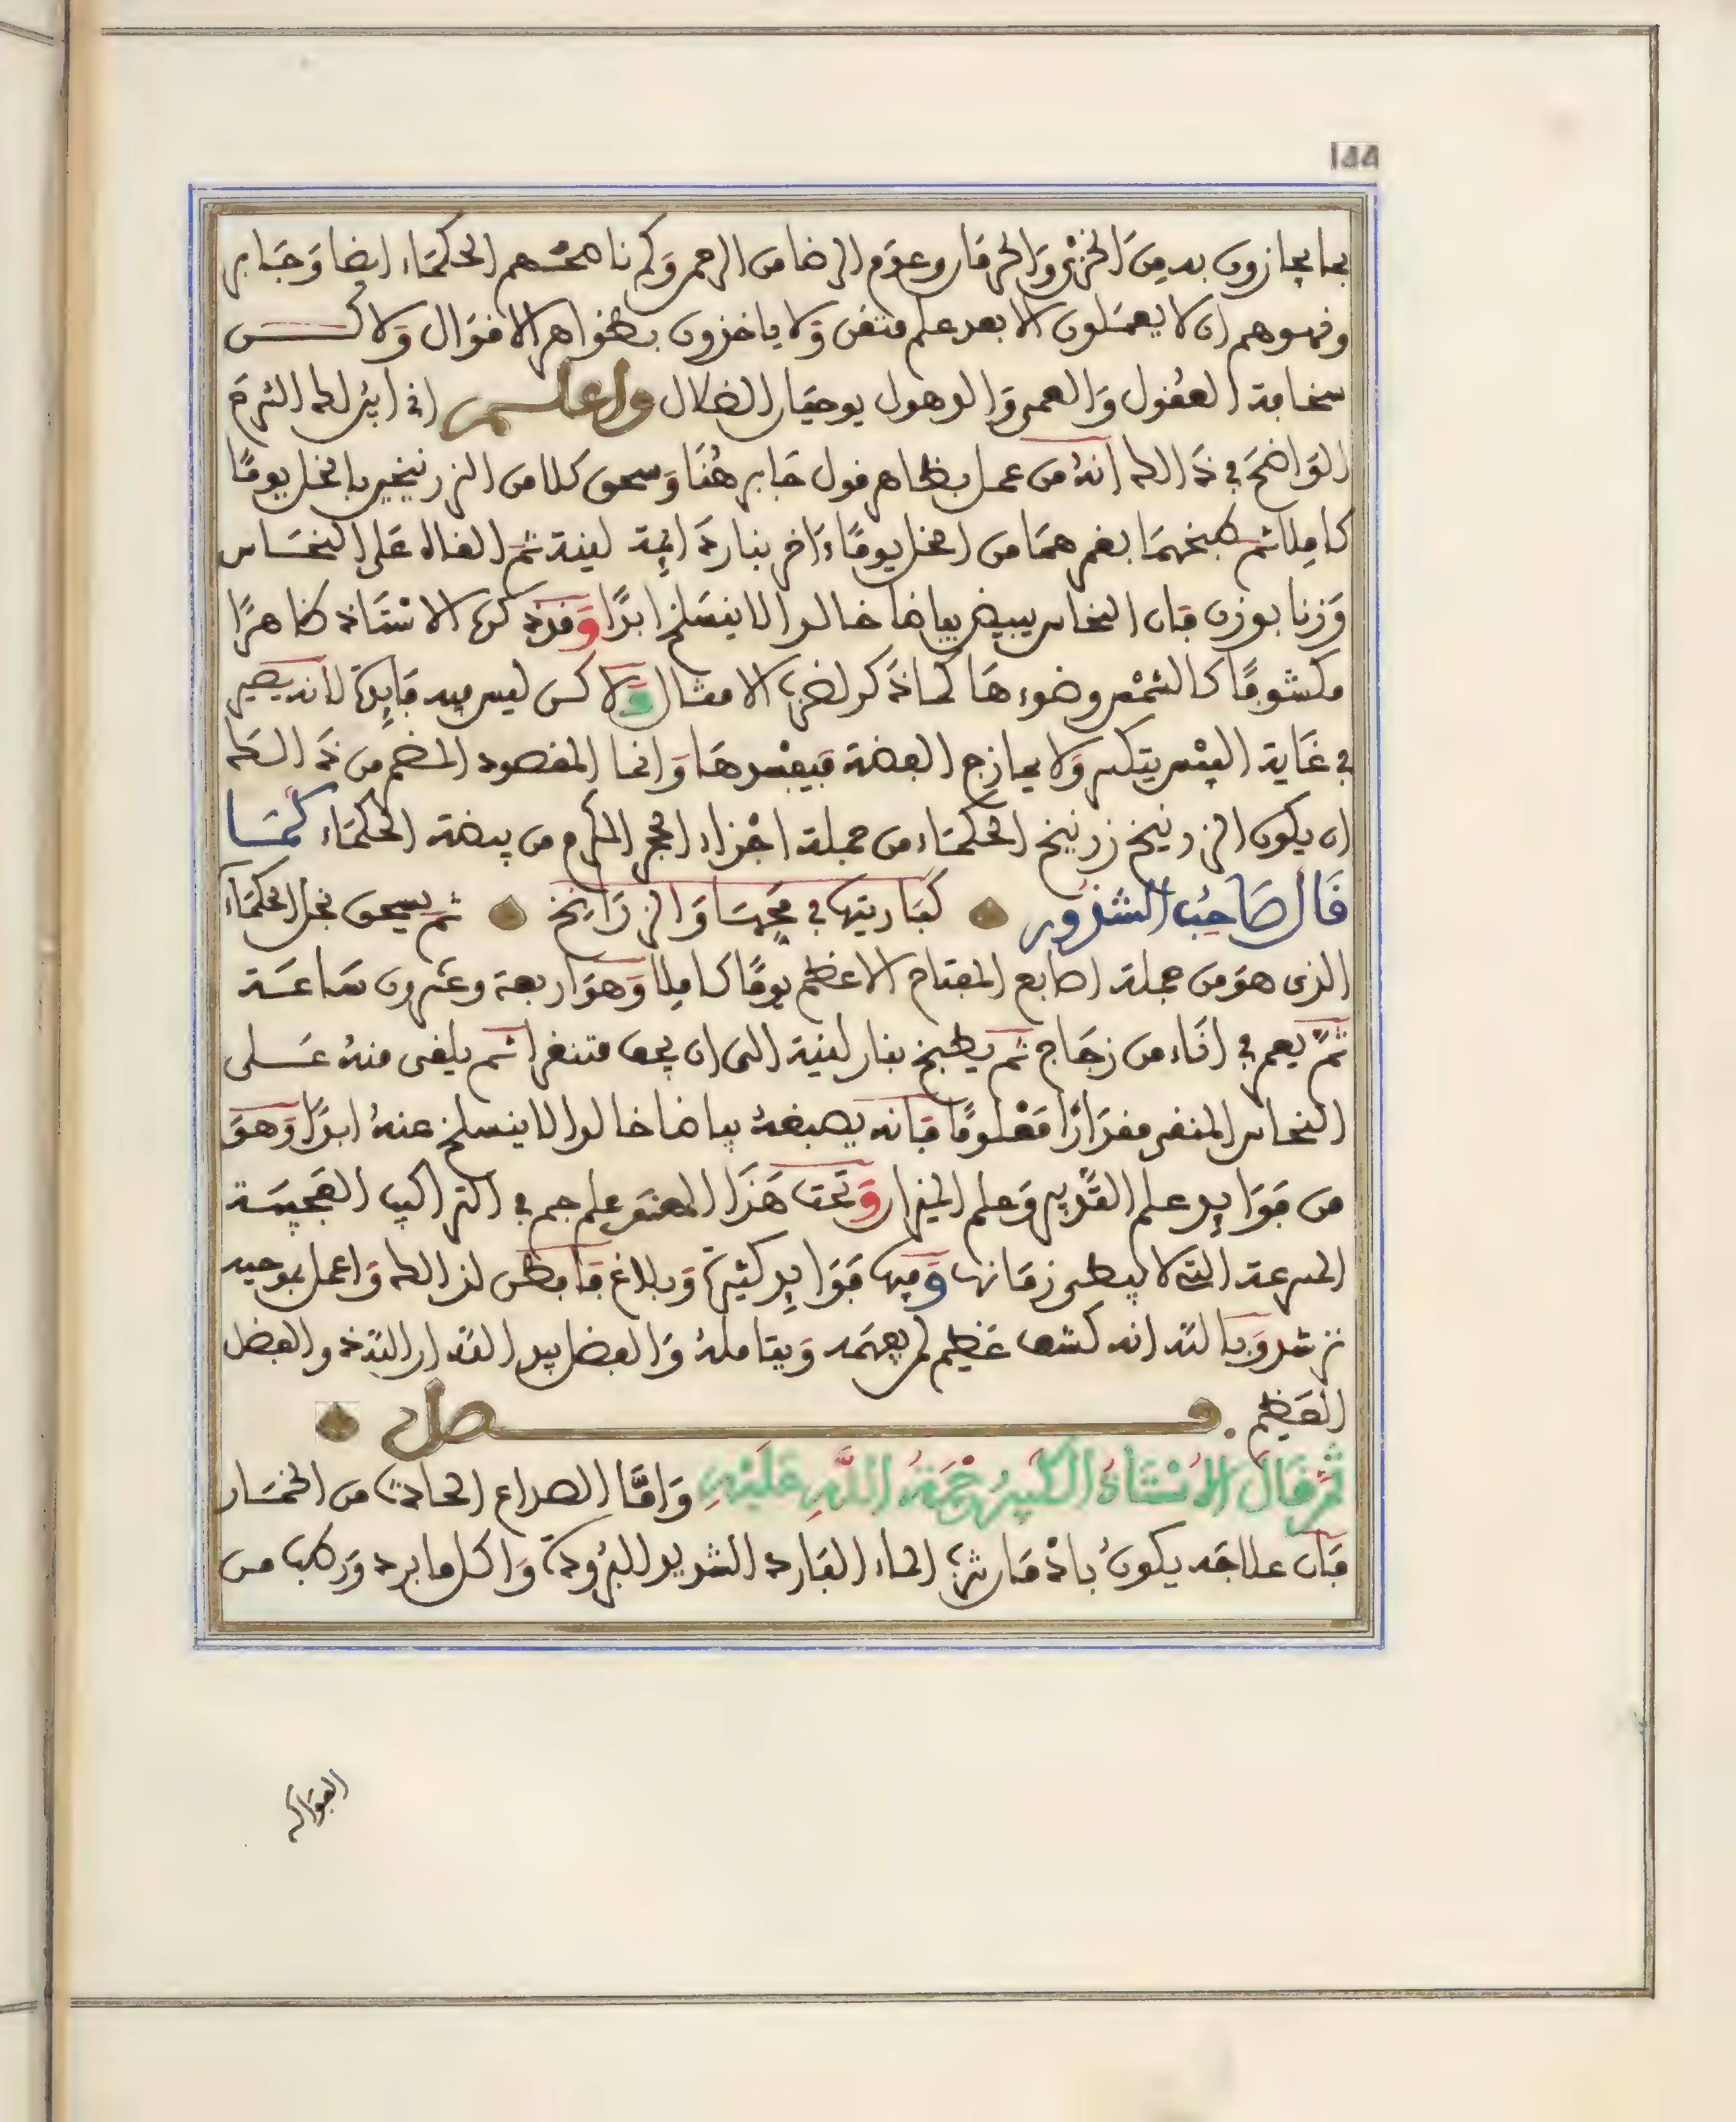 144
بما يجازون به من الخزي والحرمان وعدم الرضا من الرحمن وكم ناصحهم الحكماء ايضا وجابر
ان لا يعملون الا بعد علم متقن ولا ياخذون بظواهر الاقوال ولاكن
سخافة العقول والعمى والذهول يوجبان الضلال واعلم اني ابين لك السر
الواضح في ذالك انه من عمل بظاهر قول جابر هنا وسحق كلا من الزرنيخين بالخل يوما
كاملا ثم طبخهما بغمرهما من الخل يوما ءاخر بنار دائمة لينة ثم القاه على النحاس
وزنا بوزن فان النحاس يبيض بياضا خالدا لا ينسلخ ابدا وقد ذكره الاستاذ ظاهرا
مكشوفا كالشمس وضوءها كما ذكر لضرب الامثال ولاكن ليس فيه فايدة لانه يصير
في غاية اليبس يتكسر ولا يمازج الفضة فيفسدها وانما المقصود المضمر من ذالك
ان يكون الزرنيخ زرنيخ الحكماء من جملة اجزاء الحجر المكرم من بيضة الحكماء كما
قال صاحب الشذور كباريتها في محها والزرانخ ثم يسحق بخل الحكماء
الذى هو من جملة اصابع المفتاح الاعظم يوما كاملا وهو اربعة وعشرون ساعة
ثم يغمر في اناء من زجاج ثم يطبخ بنار لينة الى ان يجف متنقرا ثم يلقى منه على
النحاس المنقى مقدارا معلوما فانه يصبغه بياضا خالدا لا ينسلخ عنه ابدا وهو
من فوايد علم التدبير وعلم الميزان وتحت هذا المعنى علم جم في التراكيب العجيبة
المسرعة التي لا يبطى زمانها وفيها فوايد كثيرة وبلاغ فافطن لذالك واعمل بموجبه
ترشد وبالله انه كشف عظيم لمن يفهمه ويتامله والفضل بيد الله ان الله ذو الفضل
العظيم . فصل
ثم قال الاستاذ الكبير رحمة الله عليه واما الصداع الحادث من الخمار
فان علاجه يكون بادمان شرب الماء البارد الشديد البرودة واكل ما برد ورطب من
الفواكه